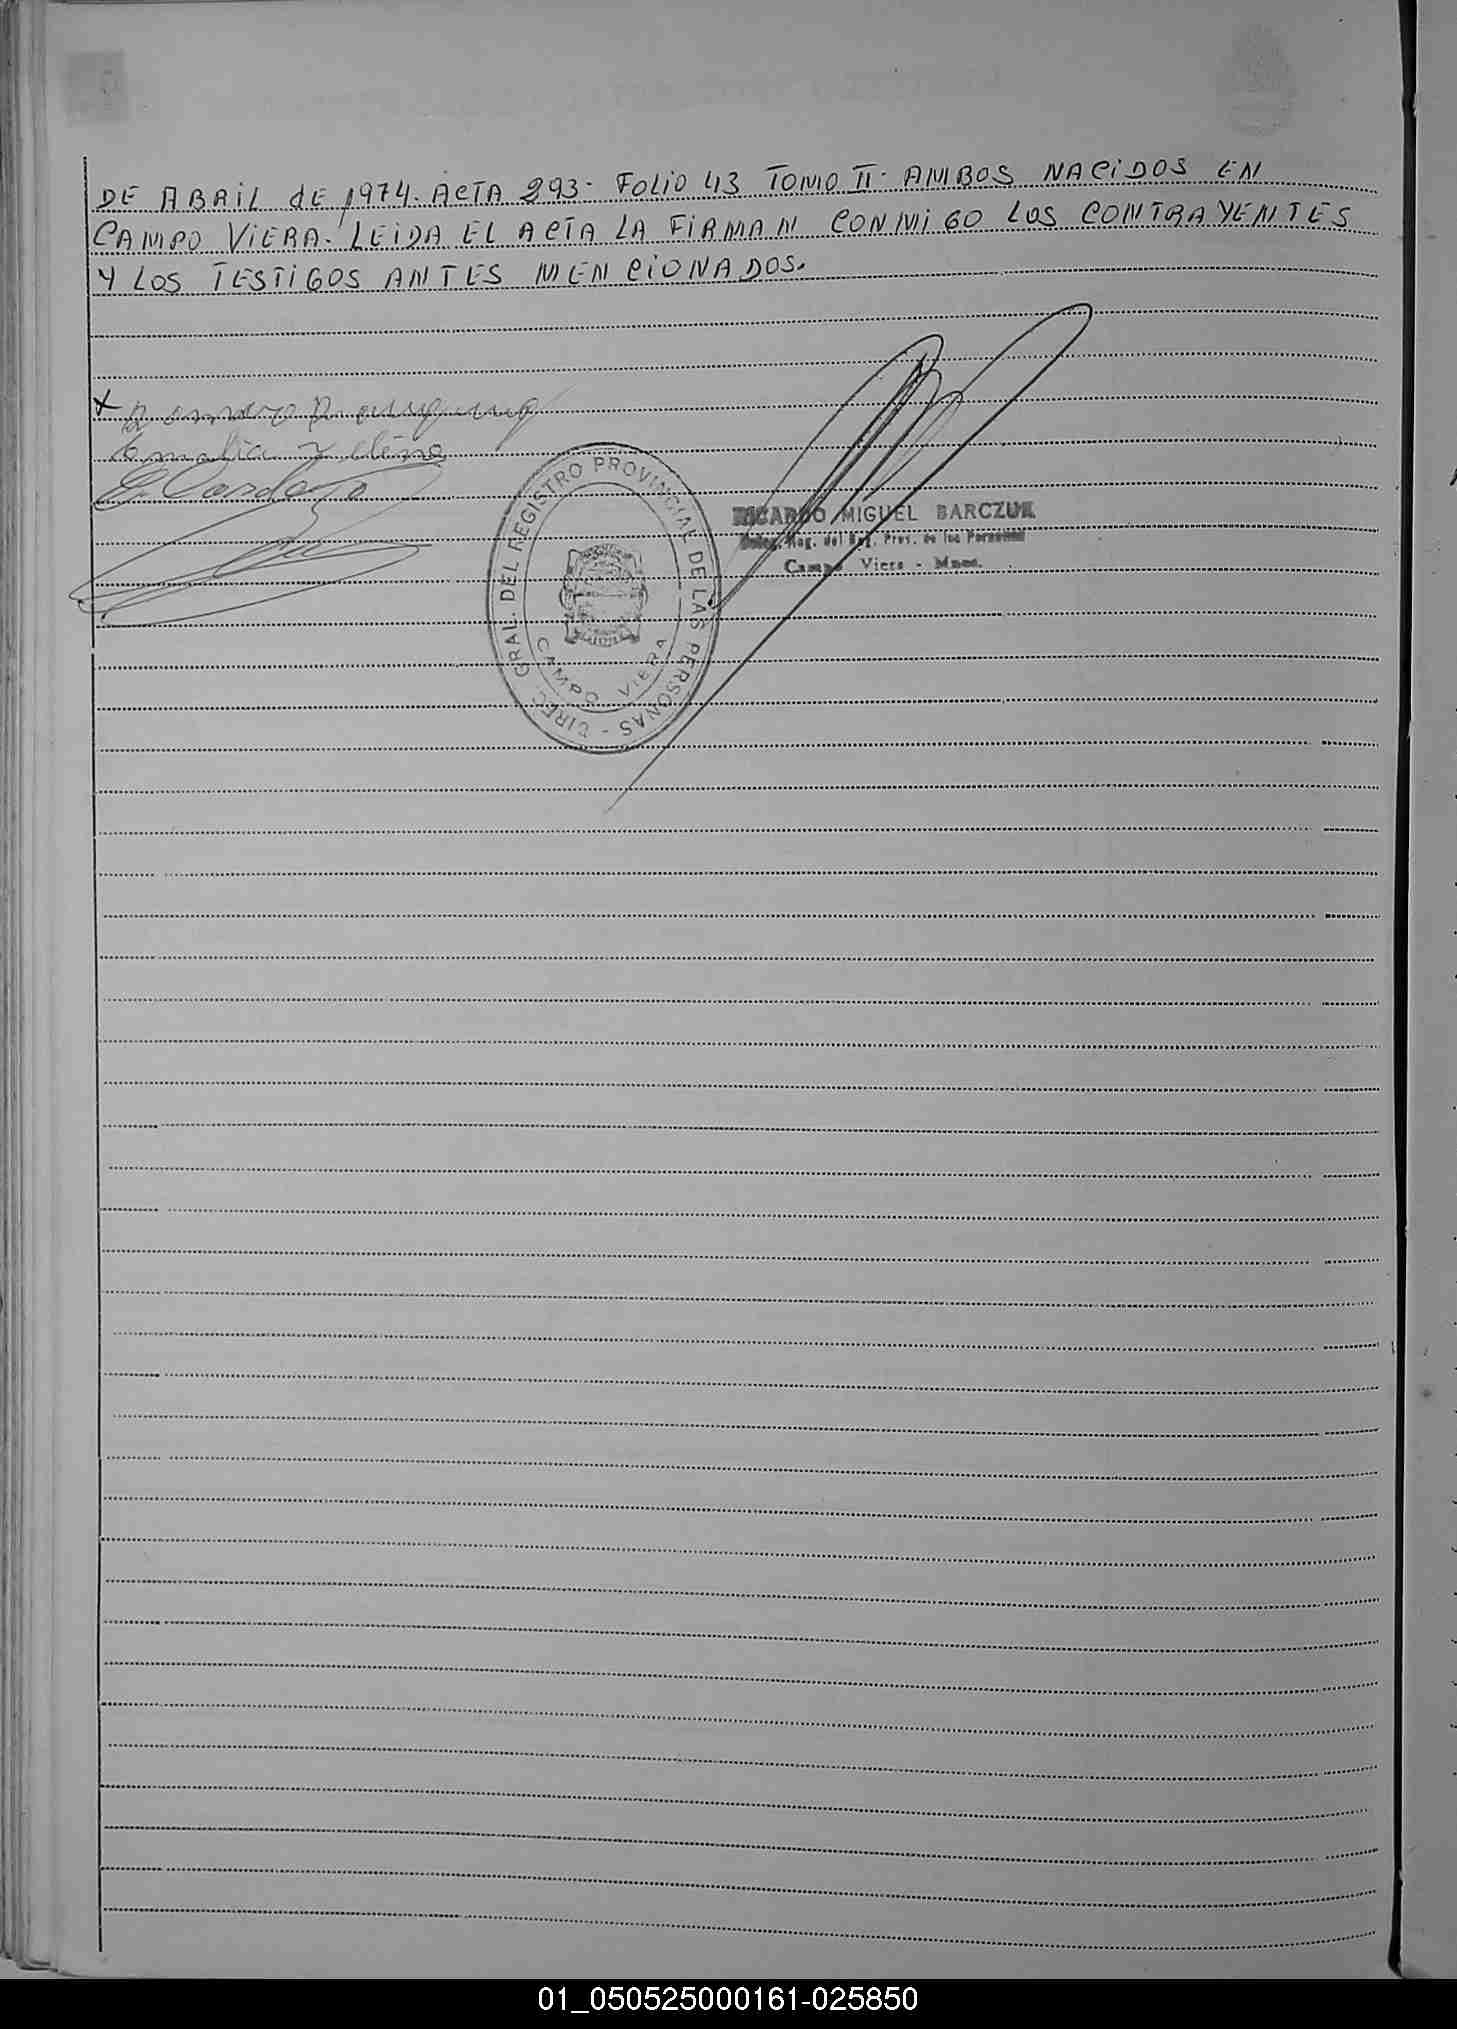 DE ABRIL dE 1974. ACTA 293- FOLIO 43 TOMO II- AMBOS NACIDOS EN
CAMPO VIERA- LEIDA EL ACTA LA FIRMAN CONMIGO LOS CONTRAYENTES
Y LOS TESTIGOS ANTES MENCIONADOS.
x
E. Cardozo
DIREC. GRAL. DEL REGISTRO PROVINCIAL DE LAS PERSONAS -
CAMPO VIERA
RICARDO MIGUEL BARCZUK
Deleg. Reg. del Reg. Prov. de las Personas
Campo Viera - Mnes.
01_050525000161-025850